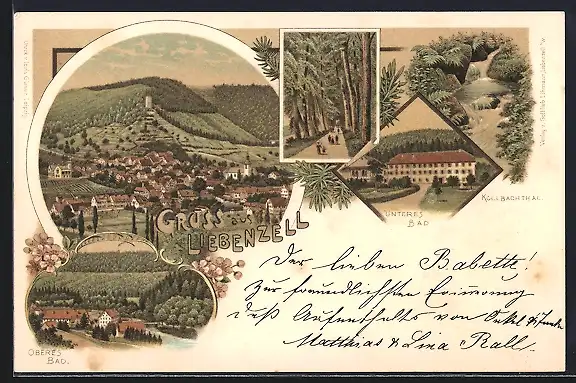 GRUSS aus
LIEBENZELL
UNTERES
BAD
KOLLBACHTHAL.
OBERES
BAD.
Der lieben Babette!
Zur freundlichsten Erinnerung
des Aufenthalts von Onkel & Tante
Matthias & Lina Rall.